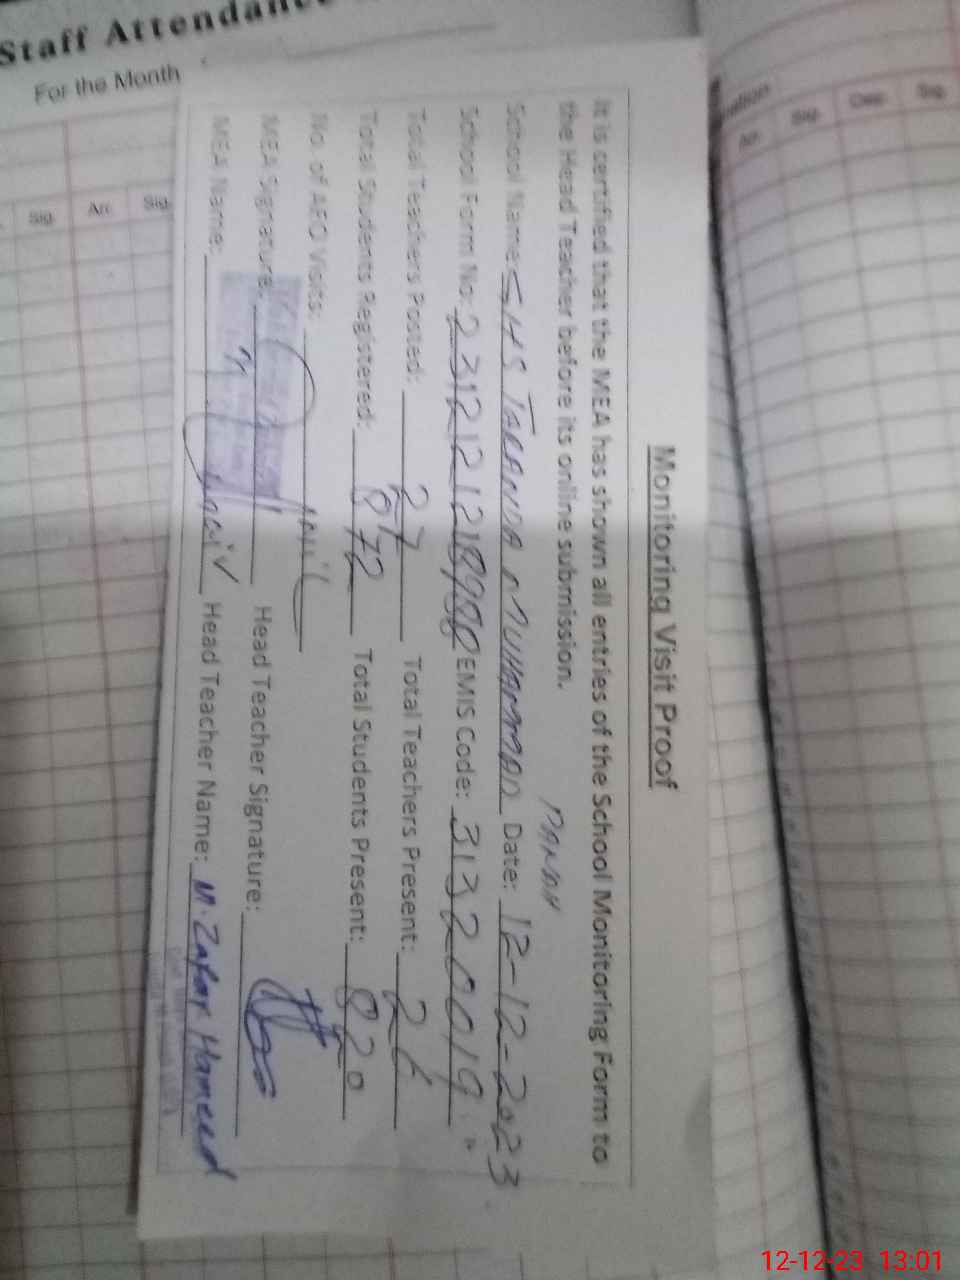 Staff Attendance
For the Month
Sig.
Arr.
Sig.
Arr.
Sig.
Dep.
Sig.
Monitoring Visit Proof
It is certified that the MEA has shown all entries of the School Monitoring Form to
the Head Teacher before its online submission.
PANAH
School Name: GHS TARANDA MUHAMMAD Date: 12-12-2023
School Form No: EMIS Code: 31320019
Total Teachers Posted: 27 Total Teachers Present: 26
Total Students Registered: 872 Total Students Present: 820
No. of AEO Visits: Nil
MEA Signature: Head Teacher Signature:
MEA Name: Head Teacher Name: M. Zafar Hameed
12-12-23 13:01